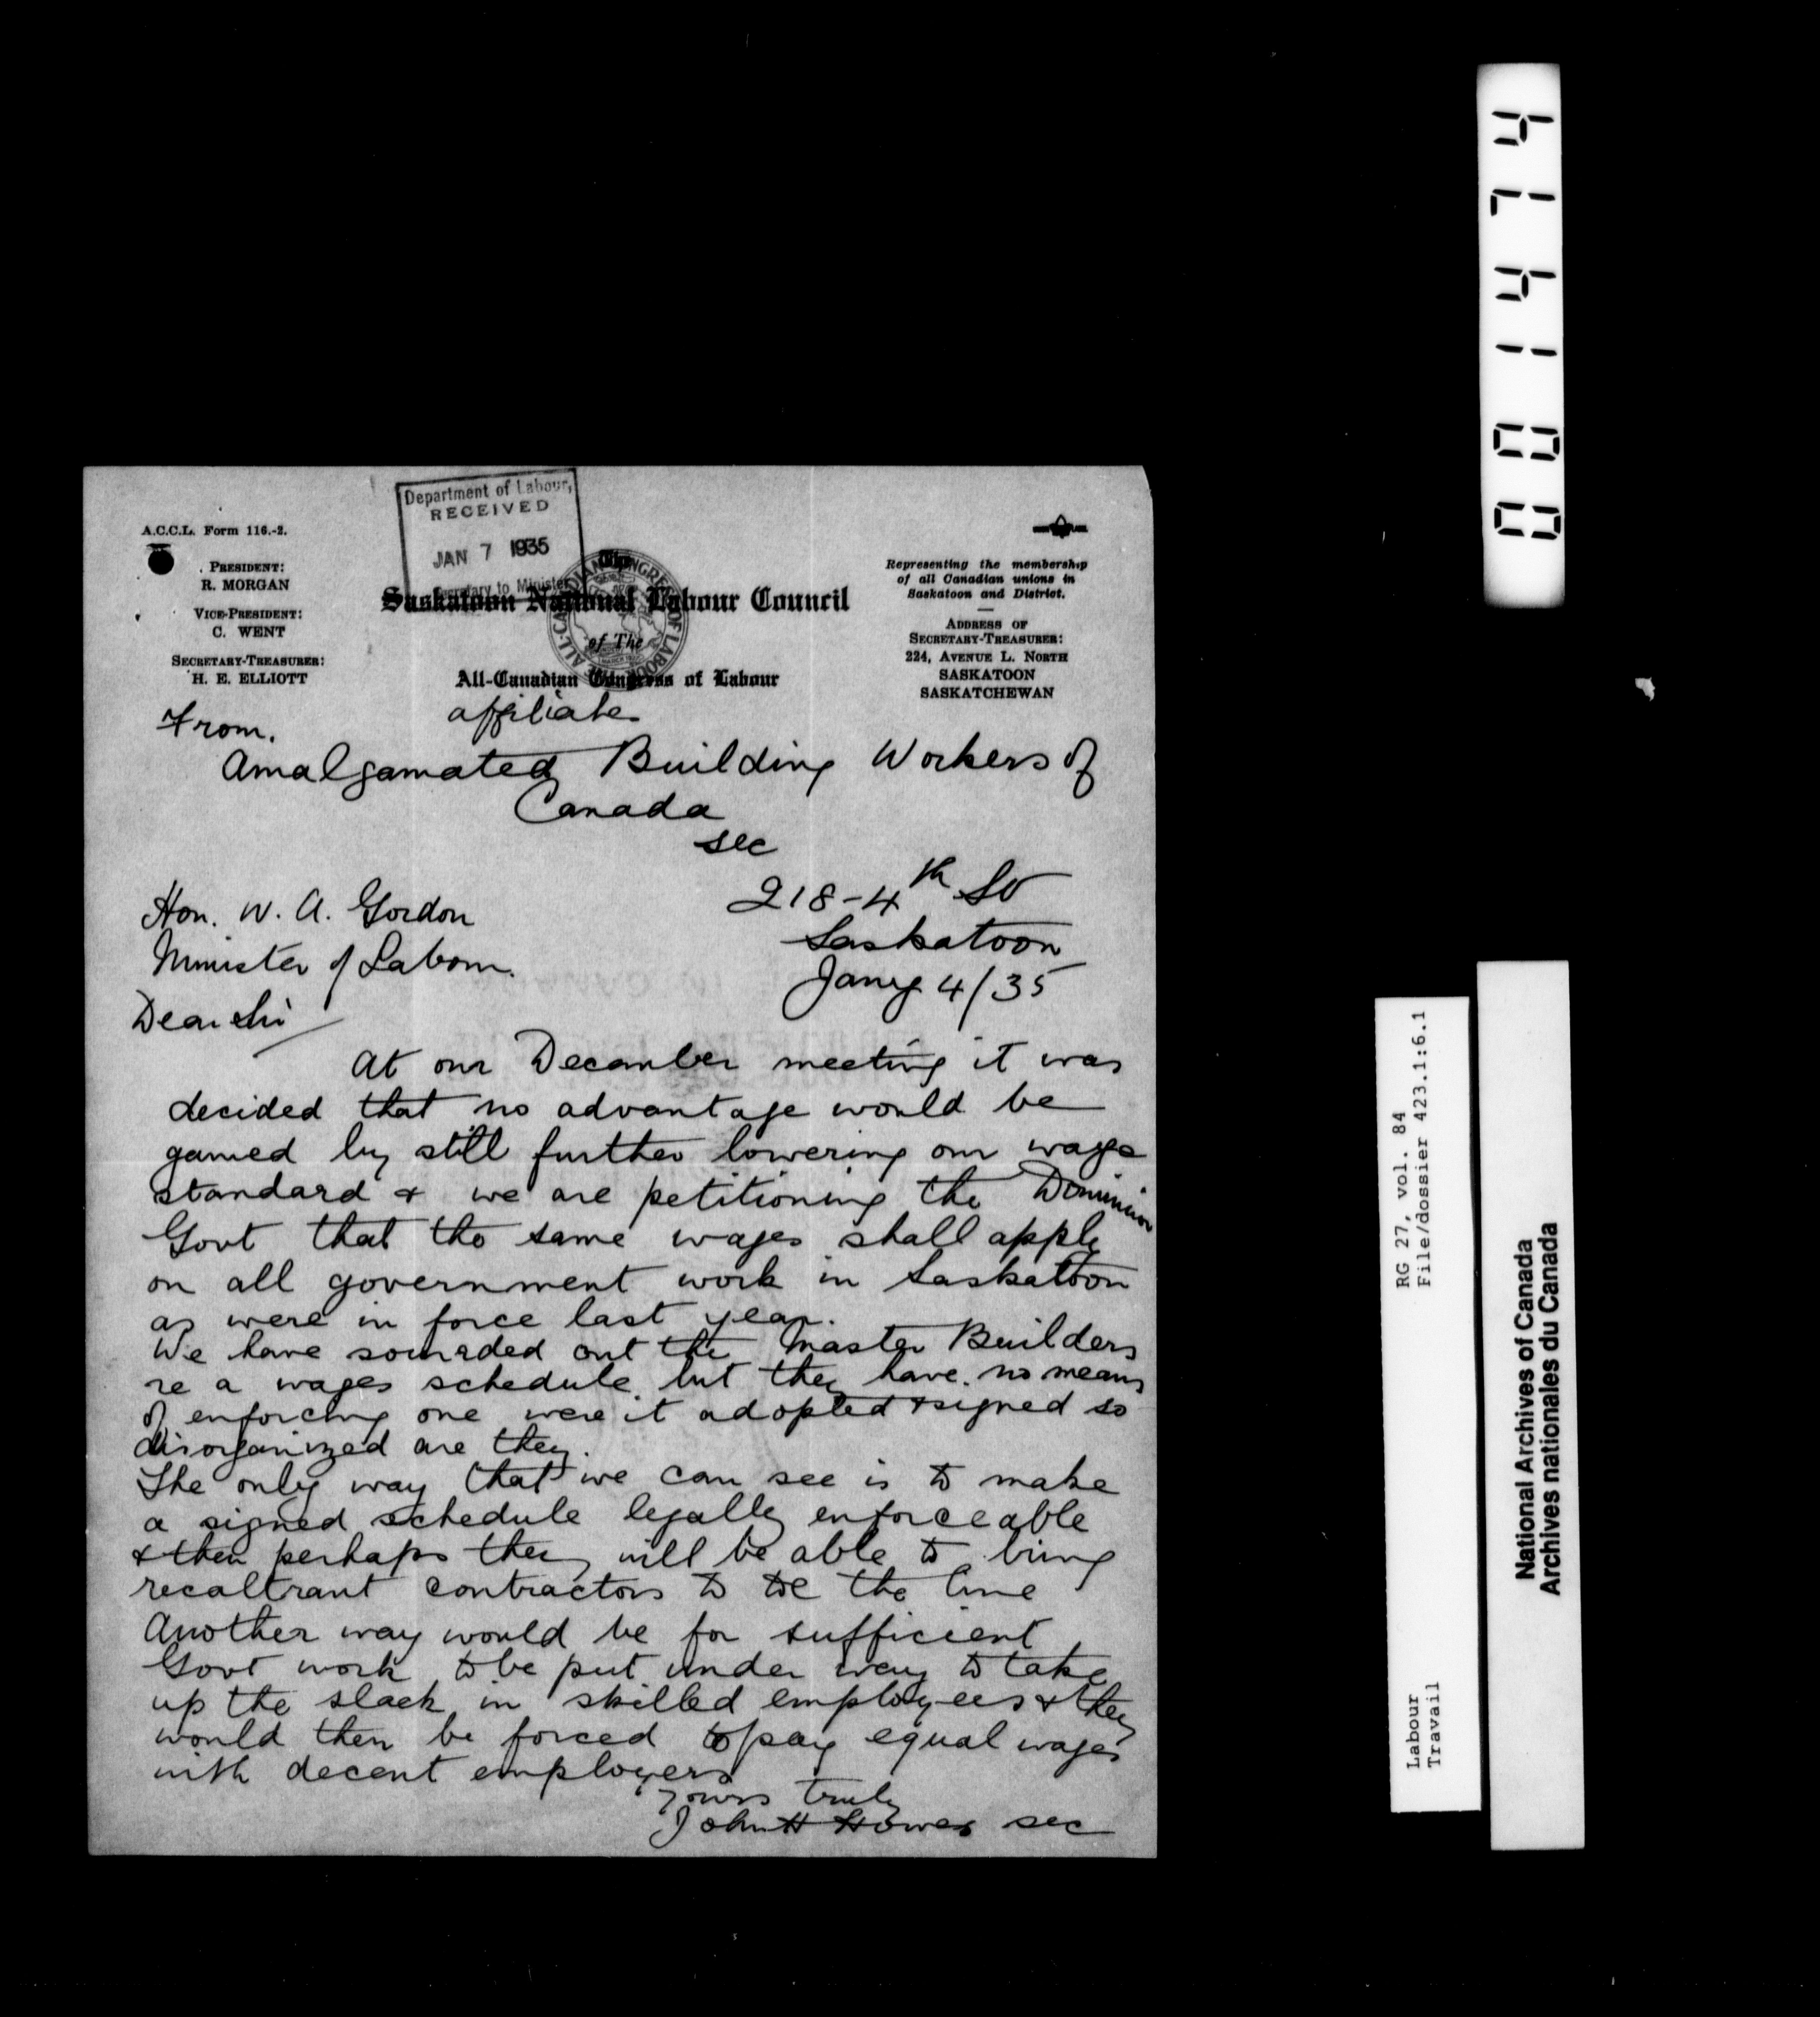 Department of Labour,
RECEIVED
JAN 7 1935
Secretary to Minister
A.C.C.L. Form 116.-2.
PRESIDENT:
R. MORGAN
VICE-PRESIDENT:
C. WENT
SECRETARY-TREASURER:
H. E. ELLIOTT
The
Saskatoon National Labour Council
of The
All-Canadian Congress of Labour
Representing the membership
of all Canadian unions in
Saskatoon and District.
ADDRESS OF
SECRETARY-TREASURER:
224, AVENUE L. NORTH
SASKATOON
SASKATCHEWAN
From. affiliate
Amalgamated Building Workers of
Canada
sec
218-4th St
Saskatoon
Jany 4/35
Hon. W. A. Gordon
Minister of Labour.
Dear Sir
At our December meeting it was
decided that no advantage would be
gained by still further lowering our wage
standard & we are petitioning the Dominion
Govt that the same wages shall apply
on all government work in Saskatoon
as were in force last year.
We have sounded out the Master Builders
re a wages schedule, but they have no means
of enforcing one were it adopted & signed so
disorganized are they.
The only way that we can see is to make
a signed schedule legally enforceable
& then perhaps they will be able to bring
recaltrant contractors to toe the line
Another way would be for sufficient
Govt work to be put under way to take
up the slack in skilled employees & they
would then be forced to pay equal wages
with decent employers
Yours truly
John H Howes sec
004174
RG 27, vol. 84
File/dossier 423.1:6.1
Labour
Travail
National Archives of Canada
Archives nationales du Canada